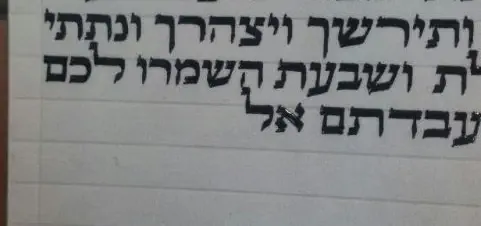 ותירשך ויצהרך ונתתי
לת ושבעת השמרו לכם
עבדתם אל